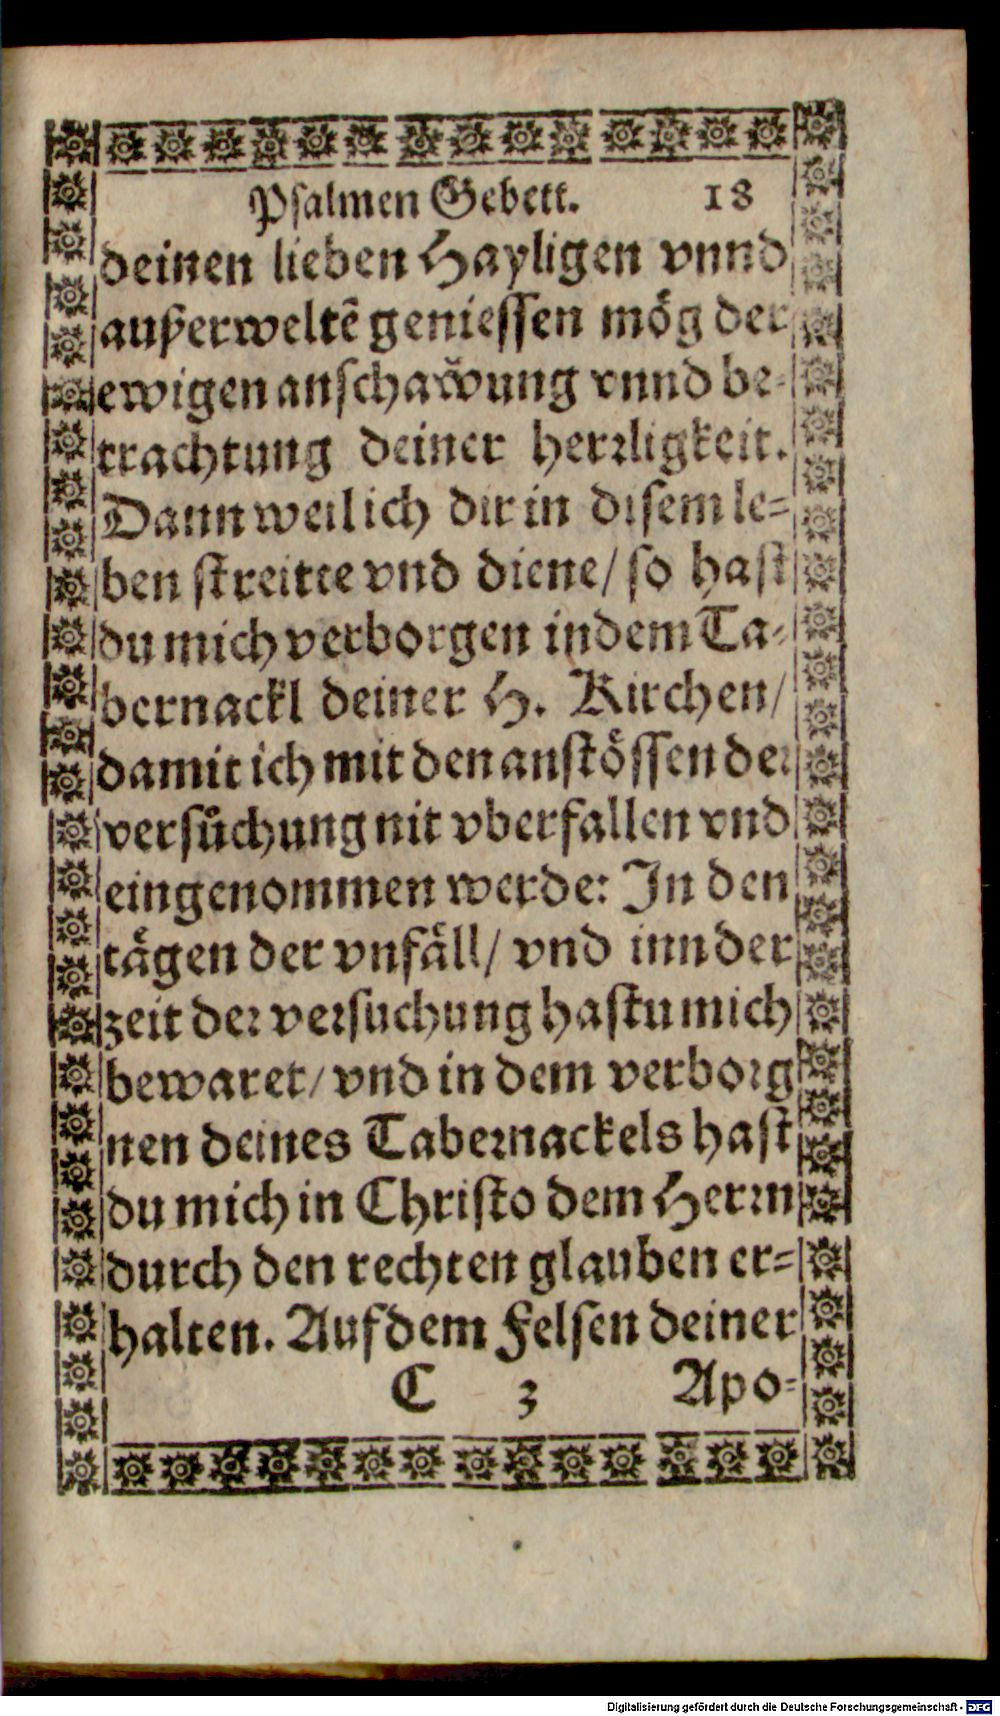 Psalmen Gebett. 18
deinen lieben Hayligen vnnd
außerweltẽ geniessen mög der
ewigen anschawung vnnd be-
trachtung deiner herrligkeit.
Dann weil ich dir in disem le-
ben streitte vnd diene/ so hast
du mich verborgen in dem Ta-
bernackl deiner H. Kirchen/
damit ich mit den anstössen der
versůchung nit vberfallen vnd
eingenommen werde: In den
tägen der vnfäll/ vnd inn der
zeit der versuchung hastu mich
bewaret/ vnd in dem verborg
nen deines Tabernackels hast
du mich in Christo dem Herrn
durch den rechten glauben er-
halten. Auf dem Felsen deiner
C 3 Apo-
Digitalisierung gefördert durch die Deutsche Forschungsgemeinschaft - DFG